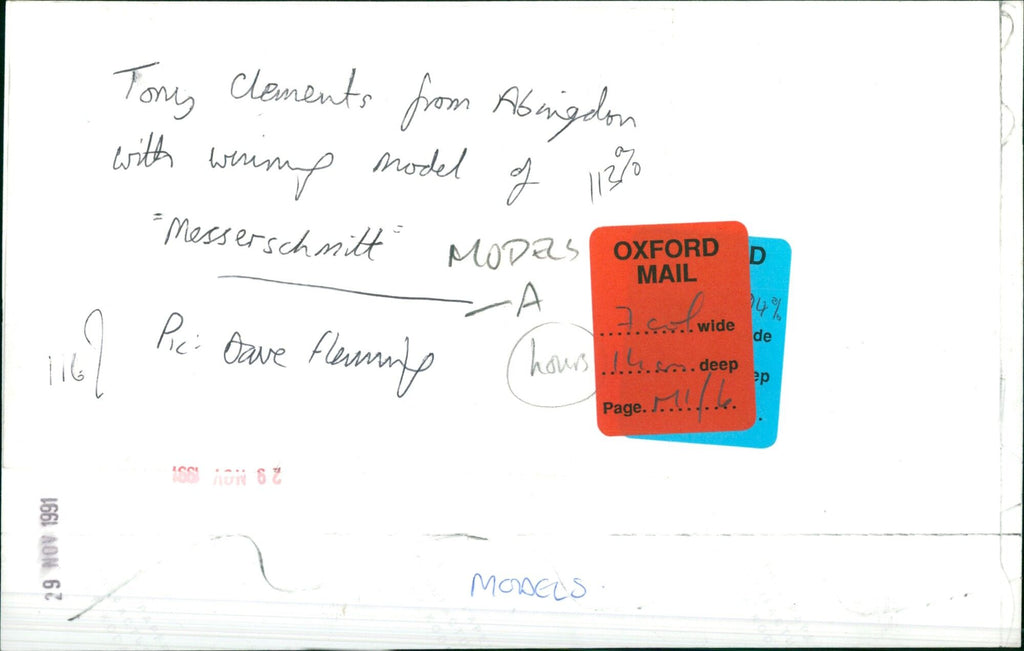 Tony Clements from Abingdon
with winning model of 112%
"Messerschmitt"
MODELS
A
Pic: Dave Fleming
hours
116
OXFORD
MAIL
7 col wide
14 cm deep
Page M11/6
D
94%
de
ep
29 NOV 1991
29 NOV 1991
MODELS